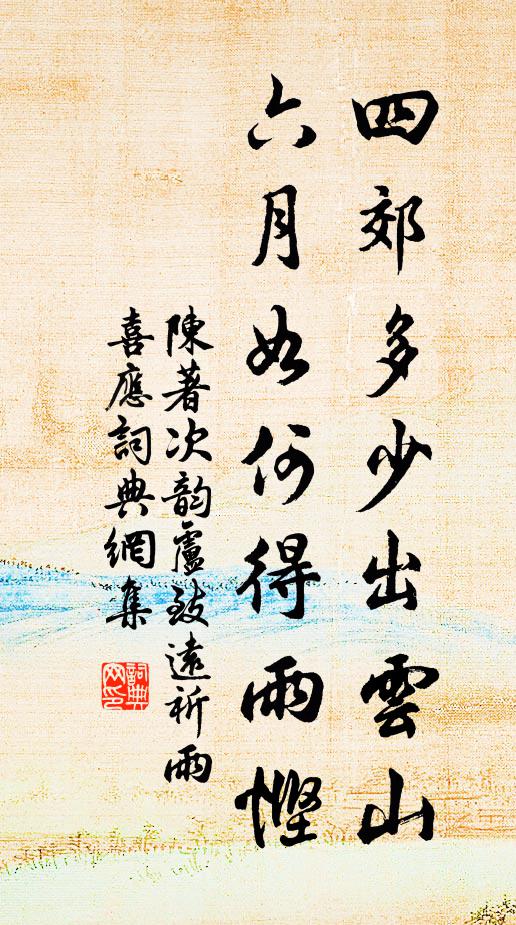 四郊多少出雲山
六月如何得雨慳
陳著次韵盧致遠祈雨
喜應詞典網集
詞典
网印